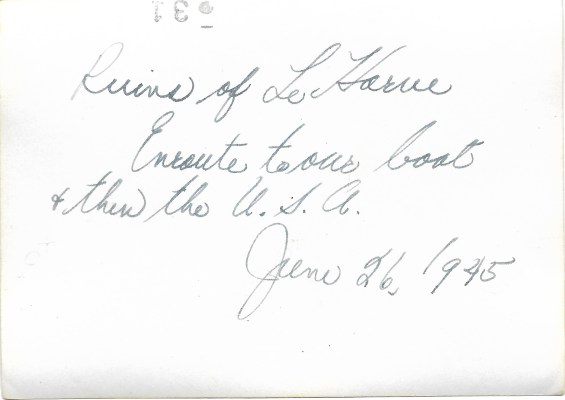 Ruins of Le Harve
Enroute to our boat
& then the U.S.A.
June 26, 1945